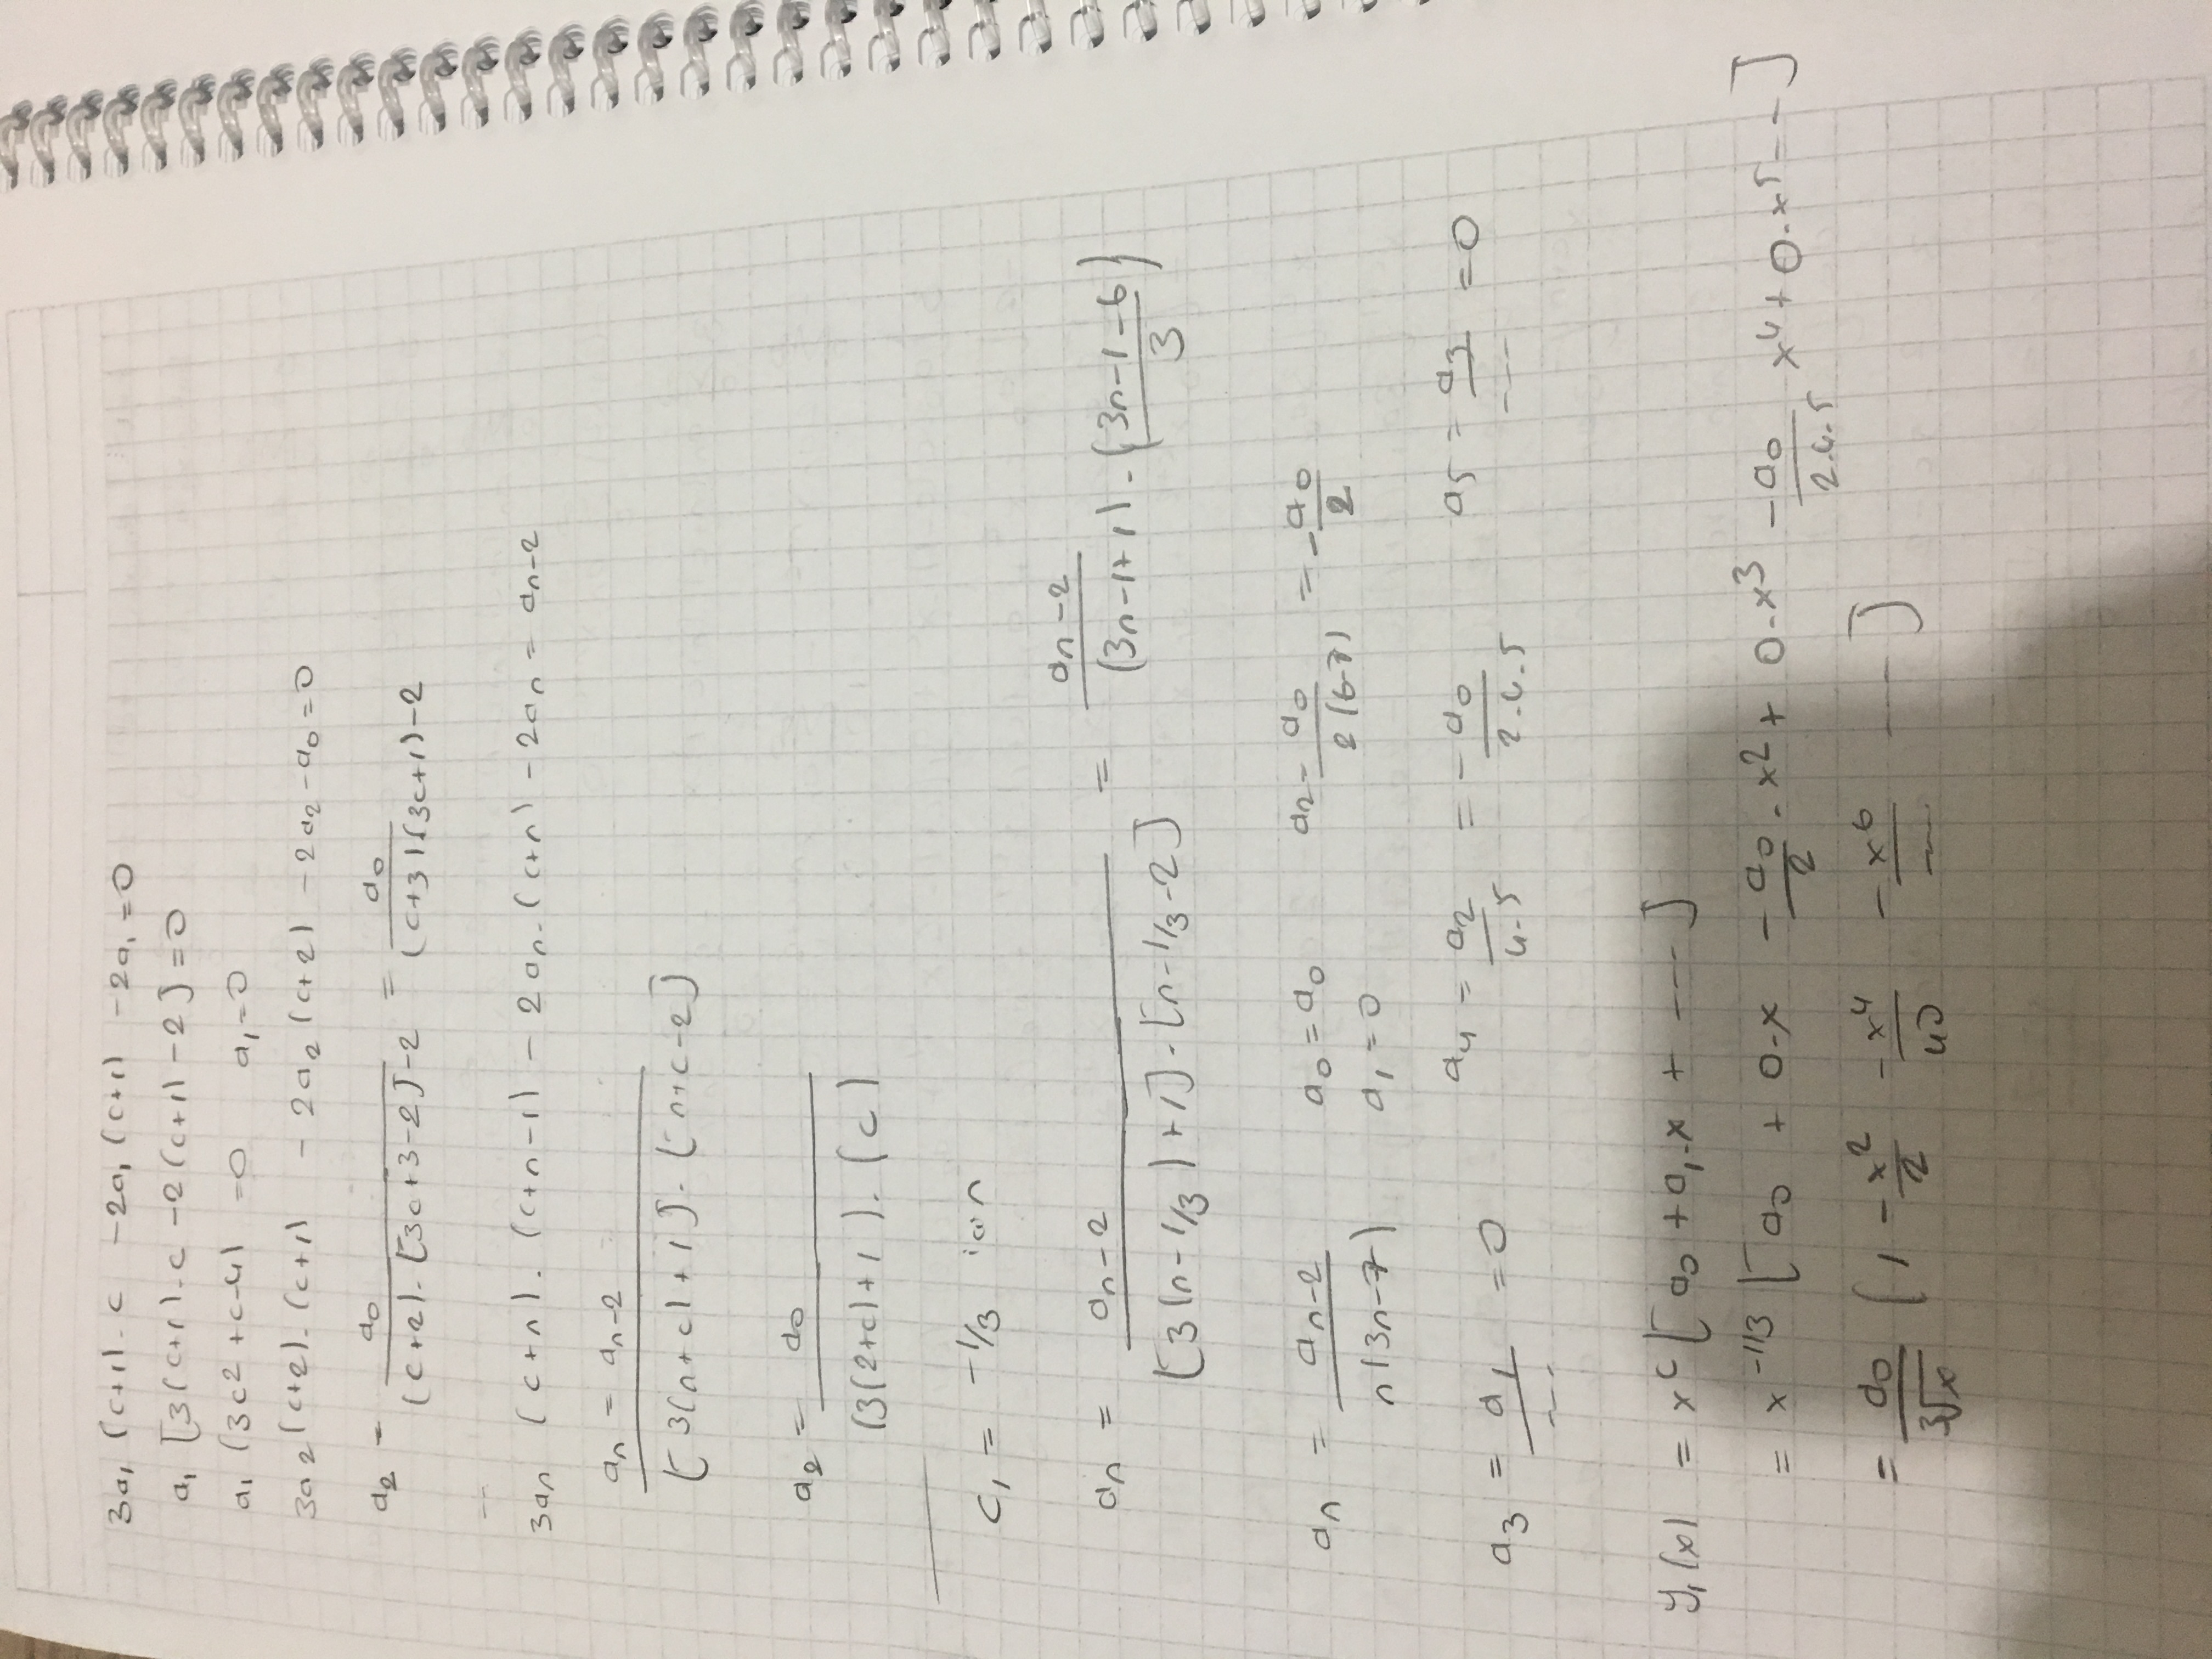 3a₁ (c+1).c -2a₁ (c+1) -2a₁ =0
a₁ [3(c+1).c -2(c+1) -2] =0
a₁ (3c²+c-4) =0 a₁=0
3a₂(c+2).(c+1) - 2a₂(c+2) -2a₂-a₀=0
a₂ = a₀/((c+2).[3c+3-2]-2) = a₀/((c+3)(3c+1)-2)
--
3aₙ (c+n).(c+n-1) - 2aₙ.(c+n) -2aₙ = aₙ₋₂
aₙ = aₙ₋₂
[3(n+c)+1].[n+c-2]
a₂ = a₀/((3(2+c)+1).(c))
c₁ = -1/3 için
aₙ = aₙ₋₂/([3(n-1/3)+1].[n-1/3-2]) = aₙ₋₂/((3n-1+1).((3n-1-6)/3))
aₙ = aₙ₋₂/(n(3n-7)) a₀=a₀ a₂=a₀/(2(6-7)) =-a₀/2
a₁=0
a₃ = a₁/--- =0 a₄ = a₂/(4.5) =-a₀/(2.4.5) a₅ = a₃/--- =0
y₁(x) = xᶜ[a₀+a₁.x + ---]
= x⁻¹/³ [a₀ + 0.x -a₀/2 .x² + 0.x³ -a₀/(2.4.5) x⁴+0.x⁵---]
= a₀/∛x [1 -x²/2 -x⁴/40 -x⁶/--- ---]